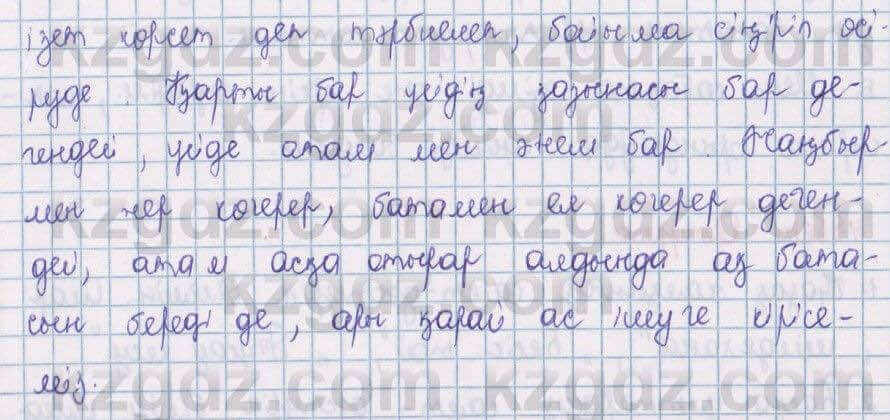 ізет көрсет деп тәрбиелеп, бойыма сіңіріп өсі-
руде. Қарты бар үйдің қазынасы бар де-
гендей, үйде атам мен әжем бар. Жаңбыр-
мен жер көгерер, батамен ел көгерер деген-
дей, атам асқа отырар алдында ақ бата-
сын береді де, ары қарай ас ішуге кірісе-
міз.
kzgaz.com